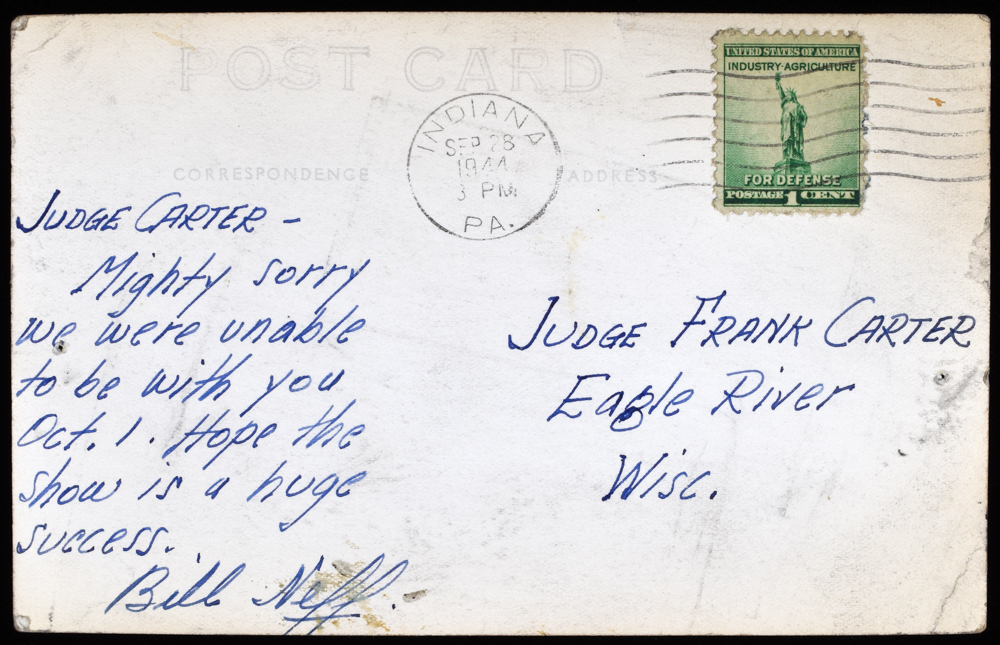 POST CARD
UNITED STATES OF AMERICA
INDUSTRY·AGRICULTURE
FOR DEFENSE
POSTAGE 1 CENT
INDIANA
SEP 28
1944
3 PM
PA.
CORRESPONDENCE
ADDRESS
JUDGE CARTER –
Mighty sorry
we were unable
to be with you
Oct. 1. Hope the
show is a huge
success.
Bill Neff.
JUDGE FRANK CARTER
Eagle River
Wisc.